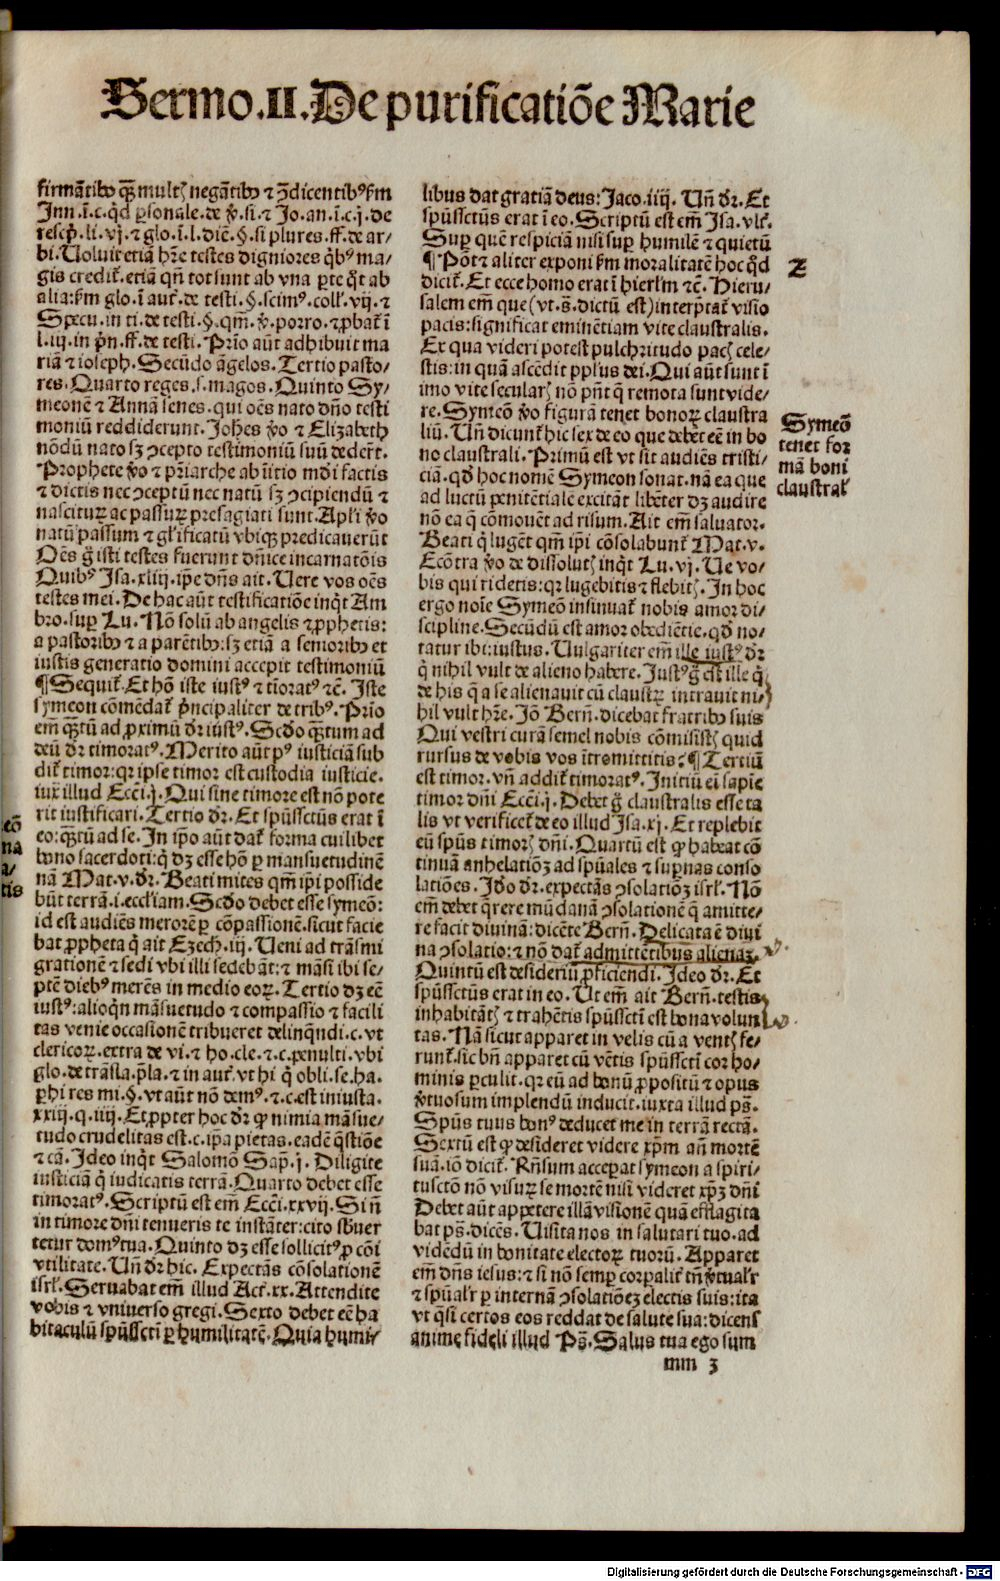 Sermo.II.De purificatiõe Marie
firmãtibꝰ ꝙ̃ multꝭ negãtibꝰ ⁊ ꝯ̃dicentibꝰ ẜm
Inn.ĩ.c.qd̃ ꝑsonale.de ꝟ̃.si.⁊ Jo.an.ĩ.c.j.de
rescp̃.li.vj.⁊ glo.ĩ.l.diẽ.§.si plures.ff.de ar/
bi.Uoluit etiã hr̃e testes digniores qb̃ꝰ ma/
gis credit̃.etiã qñ tot sunt ab vna ꝑte qͦt ab
alia:ẜm glo.ĩ aut̃.de testi.§.scimꝰ.coll̃.vij.⁊
Specu.in ti.de testi.§.qm̃.ꝟ̃.porro.⁊ ꝓbat̃ ĩ
l.iij.in pñ.ff.de testi. Prĩo aũt adhibuit ma
riã ⁊ ioseph. Secũdo ãgelos. Tertio pasto/
res. Quarto reges.s.magos. Quinto Sy/
meonẽ ⁊ Annã senes.qui oẽs nato dño testi
moniũ reddiderunt. Joh̃es ꝟo ⁊ Elizabeth
nõdũ nato sꝫ ꝯcepto testimoniũ suũ dedert̃.
Prophete ꝟo ⁊ pr̃iarche ab ĩitio mũdi factis
⁊ dictis nec ꝯceptũ nec natũ sꝫ ꝯcipiendũ ⁊
nasciturꝫ ac passurꝫ presagiati sunt. Apl̃i ꝟo
natũ passum ⁊ gl̃ificatũ vbiqꝫ predicauerũt
Oẽs g̃ isti testes fuerunt dñice incarnatõis
Quibꝰ Isa.xliij.ip̃e dñs ait. Uere vos oẽs
testes mei. De hac aũt testificatiõe inqͥt Am
bro.sup̃ Lu. Nõ solũ ab angelis ⁊ ꝓphetis:
a pastoribꝰ ⁊ a parẽtibꝰ:sꝫ etiã a senioribꝰ et
iustis generatio domini accepit testimoniũ
¶ Sequit̃. Et hõ iste iustꝰ ⁊ tĩoratꝰ ⁊c̃. Iste
symeon cõmẽdat̃ p̃ncipaliter de tribꝰ. Prĩo
em̃ ꝙ̃tũ ad ꝓximũ dr̃ iustꝰ. Scd̃o ꝙ̃tum ad
deũ dr̃ timoratꝰ. Merito aũt pꝰ iusticiã sub
dit̃ timor:qꝛ ipse timor est custodia iusticie.
iux̃ illud Ecc̃i.j. Qui sine timore est nõ pote
rit iustificari. Tertio dr̃. Et spũssctũs erat ĩ
eo:ꝙ̃tũ ad se. In ip̃o aũt dat̃ forma cuilibet
bono sacerdoti:qͥ dꝫ esse hõ ꝑ mansuetudinẽ
nã Mat.v.dr̃. Beati mites qm̃ ip̃i posside
bũt terrã.i.eccl̃iam. Scd̃o debet esse symeõ:
id est audiẽs merorẽ ꝑ cõpassionẽ.sicut facie
bat ꝓpheta qͥ ait Ezech.iij. Ueni ad trãsmi
grationẽ ⁊ sedi vbi illi sedebãt:⁊ mãsi ibi se/
ptẽ diebꝰ merẽs in medio eorꝫ. Tertio dꝫ eẽ
iustꝰ:alioqͥn mãsuetudo ⁊ compassio ⁊ facili
tas venie occasionẽ tribueret delinqñdi.c.vt
clericorꝫ.extra de vi.⁊ ho.cle.⁊.c.penulti.vbi
glo.de trãsla.p̃la.⁊ in aut̃.vt hi qͥ obli.se.ha.
ꝑhi res mi.§.vt aũt nõ demꝰ.⁊.c.est iniusta.
xxiij.q.iiij. Et ꝓpter hoc dr̃ ꝙ nimia mãsue/
tudo crudelitas est.c.ip̃a pietas.eadẽ qͣstiõe
⁊ cã. Ideo inqͥt Salomõ Sap̃.j. Diligite
iusticiã qͥ iudicatis terrã. Quarto debet esse
timoratꝰ. Scriptũ est em̃ Ecc̃i.xxvij. Si ñ
in timore dñi tenueris te instãter:cito sb̃uer
tetur domꝰ tua. Quinto dꝫ esse sollicitꝰ ꝓ cõi
vtilitate. Uñ dr̃ hic. Expectãs cõsolationẽ
isrl̃. Seruabat em̃ illud Act̃.xx. Attendite
vobis ⁊ vniuerso gregi. Sexto debet eẽ ha
bitaculũ spũssctĩ ꝑ humilitatẽ. Quia humi/
libus dat gratiã deus:Jaco.iiij. Uñ dr̃. Et
spũssctũs erat ĩ eo. Scriptũ est em̃ Isa.vlt̃.
Sup̃ quẽ respiciã nisi sup̃ humilẽ ⁊ quietũ
¶ Põt ⁊ aliter exponi ẜm moralitatẽ hoc qd̃
dicit̃. Et ecce homo erat ĩ hierl̃m ⁊c̃. Hieru/
salem em̃ que (vt.s̃.dictũ est) interp̃tat̃ visio
pacis:significat eminẽtiam vite claustralis.
Ex qua videri potest pulchritudo pacꝭ cele/
stis:in quã ascẽdit pp̃lus dei. Qui aũt sunt ĩ
imo vite secularꝭ nõ pñt q̃ remota sunt vide/
re. Symeõ ꝟo figurã tenet bonorꝫ claustra
liũ. Uñ dicunt̃ hic sex de eo que debẽt eẽ in bo
no claustrali. Primũ est vt sit audiẽs tristi/
ciã.qd̃ hoc nomẽ Symeon sonat.nã ea que
ad luctũ penitẽtiale excitãt libẽter dꝫ audire
nõ ea q̃ cõmouẽt ad risum. Ait em̃ saluator.
Beati qͥ lugẽt qm̃ ip̃i cõsolabunt̃ Mat.v.
Ecõtra ꝟo de dissolutꝭ inqͥt Lu.vj. Ue vo/
bis qui ridetis:qꝛ lugebitis ⁊ flebitꝭ. In hoc
ergo noĩe Symeõ insinuat̃ nobis amor di/
scipline. Secũdũ est amor obediẽtie.qd̃ no/
tatur ibi:iustus. Uulgariter em̃ ille iustꝰ dr̃
qͥ nihil vult de alieno habere. Justꝰ g̃ est ille qͥ
de his q̃ a se alienauit cũ claustrꝫ intrauit ni/
hil vult hr̃e. Jõ Berñ.dicebat fratribꝰ suis
Qui vestri curã semel nobis cõmisistꝭ quid
rursus de vobis vos ĩtromittitis? ¶ Tertiũ
est timor.vñ addit̃ timoratꝰ. Initiũ em̃ sapĩe
timor dñi Ecc̃i.j. Debet g̃ claustralis esse ta
lis vt verificet̃ de eo illud Isa.xj. Et replebit
eũ spũs timorꝭ dñi. Quartũ est ꝙ habeat cõ
tinuã anhelatiõꝫ ad spũales ⁊ supñas conso
latiões. Jdo dr̃.expectãs ꝯsolatiõꝫ isrl̃. Nõ
em̃ debet qͥrere mũdanã ꝯsolationẽ q̃ amitte/
re facit diuinã:dicẽte Berñ. Delicata ẽ diui
na ꝯsolatio:⁊ nõ dat̃ admittẽtibus alienaꝫ.
Quintũ est desideriũ ꝓficiendi. Ideo dr̃. Et
spũssctũs erat in eo. Ut em̃ ait Berñ.testis
inhabitãtꝭ ⁊ trahẽtis spũssctĩ est bona volun
tas. Nã sicut apparet in velis cũ a ventꝭ fe/
runt̃.sic bñ apparet cũ vẽtis spũssctĩ cor ho/
minis ꝑculit.qꝛ eũ ad bonũ ꝓpositũ ⁊ opus
ꝟtuosum implendũ inducit.iuxta illud ps̃.
Spũs tuus bonꝰ deducet me in terrã rectã.
Sextũ est ꝙ desideret videre xp̃m añ mortẽ
suã.iõ dicit̃. Rñsum acceꝑat symeon a spiri/
tusctõ nõ visurꝫ se mortẽ nisi videret xp̃ꝫ dñi
Debet aũt appetere illã visionẽ quã efflagita
bat ps̃.dicẽs. Uisita nos in salutari tuo.ad
vidẽdũ in bonitate electorꝫ tuorũ. Apparet
em̃ dñs iesus:⁊ si nõ semꝑ corꝑalit̃ tñ ꝟtual̃r
⁊ spũal̃r ꝑ internã ꝯsolatiõeꝫ electis suis:ita
vt qͣsi certos eos reddat de salute sua:dicens
anime fideli illud Ps̃. Salus tua ego sum
mm 3
2
Symeõ
tenet for
mã boni
claustral̃
eõ
na
a/
tis
Digitalisierung gefördert durch die Deutsche Forschungsgemeinschaft - DFG